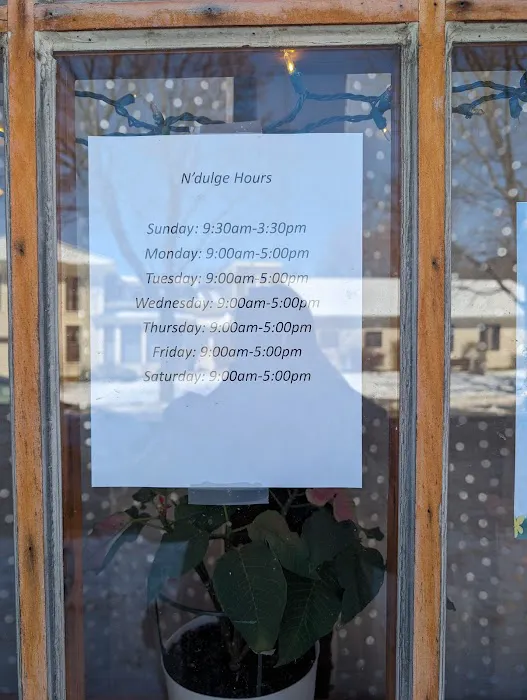 N'dulge Hours
Sunday: 9:30am-3:30pm
Monday: 9:00am-5:00pm
Tuesday: 9:00am-5:00pm
Wednesday: 9:00am-5:00pm
Thursday: 9:00am-5:00pm
Friday: 9:00am-5:00pm
Saturday: 9:00am-5:00pm